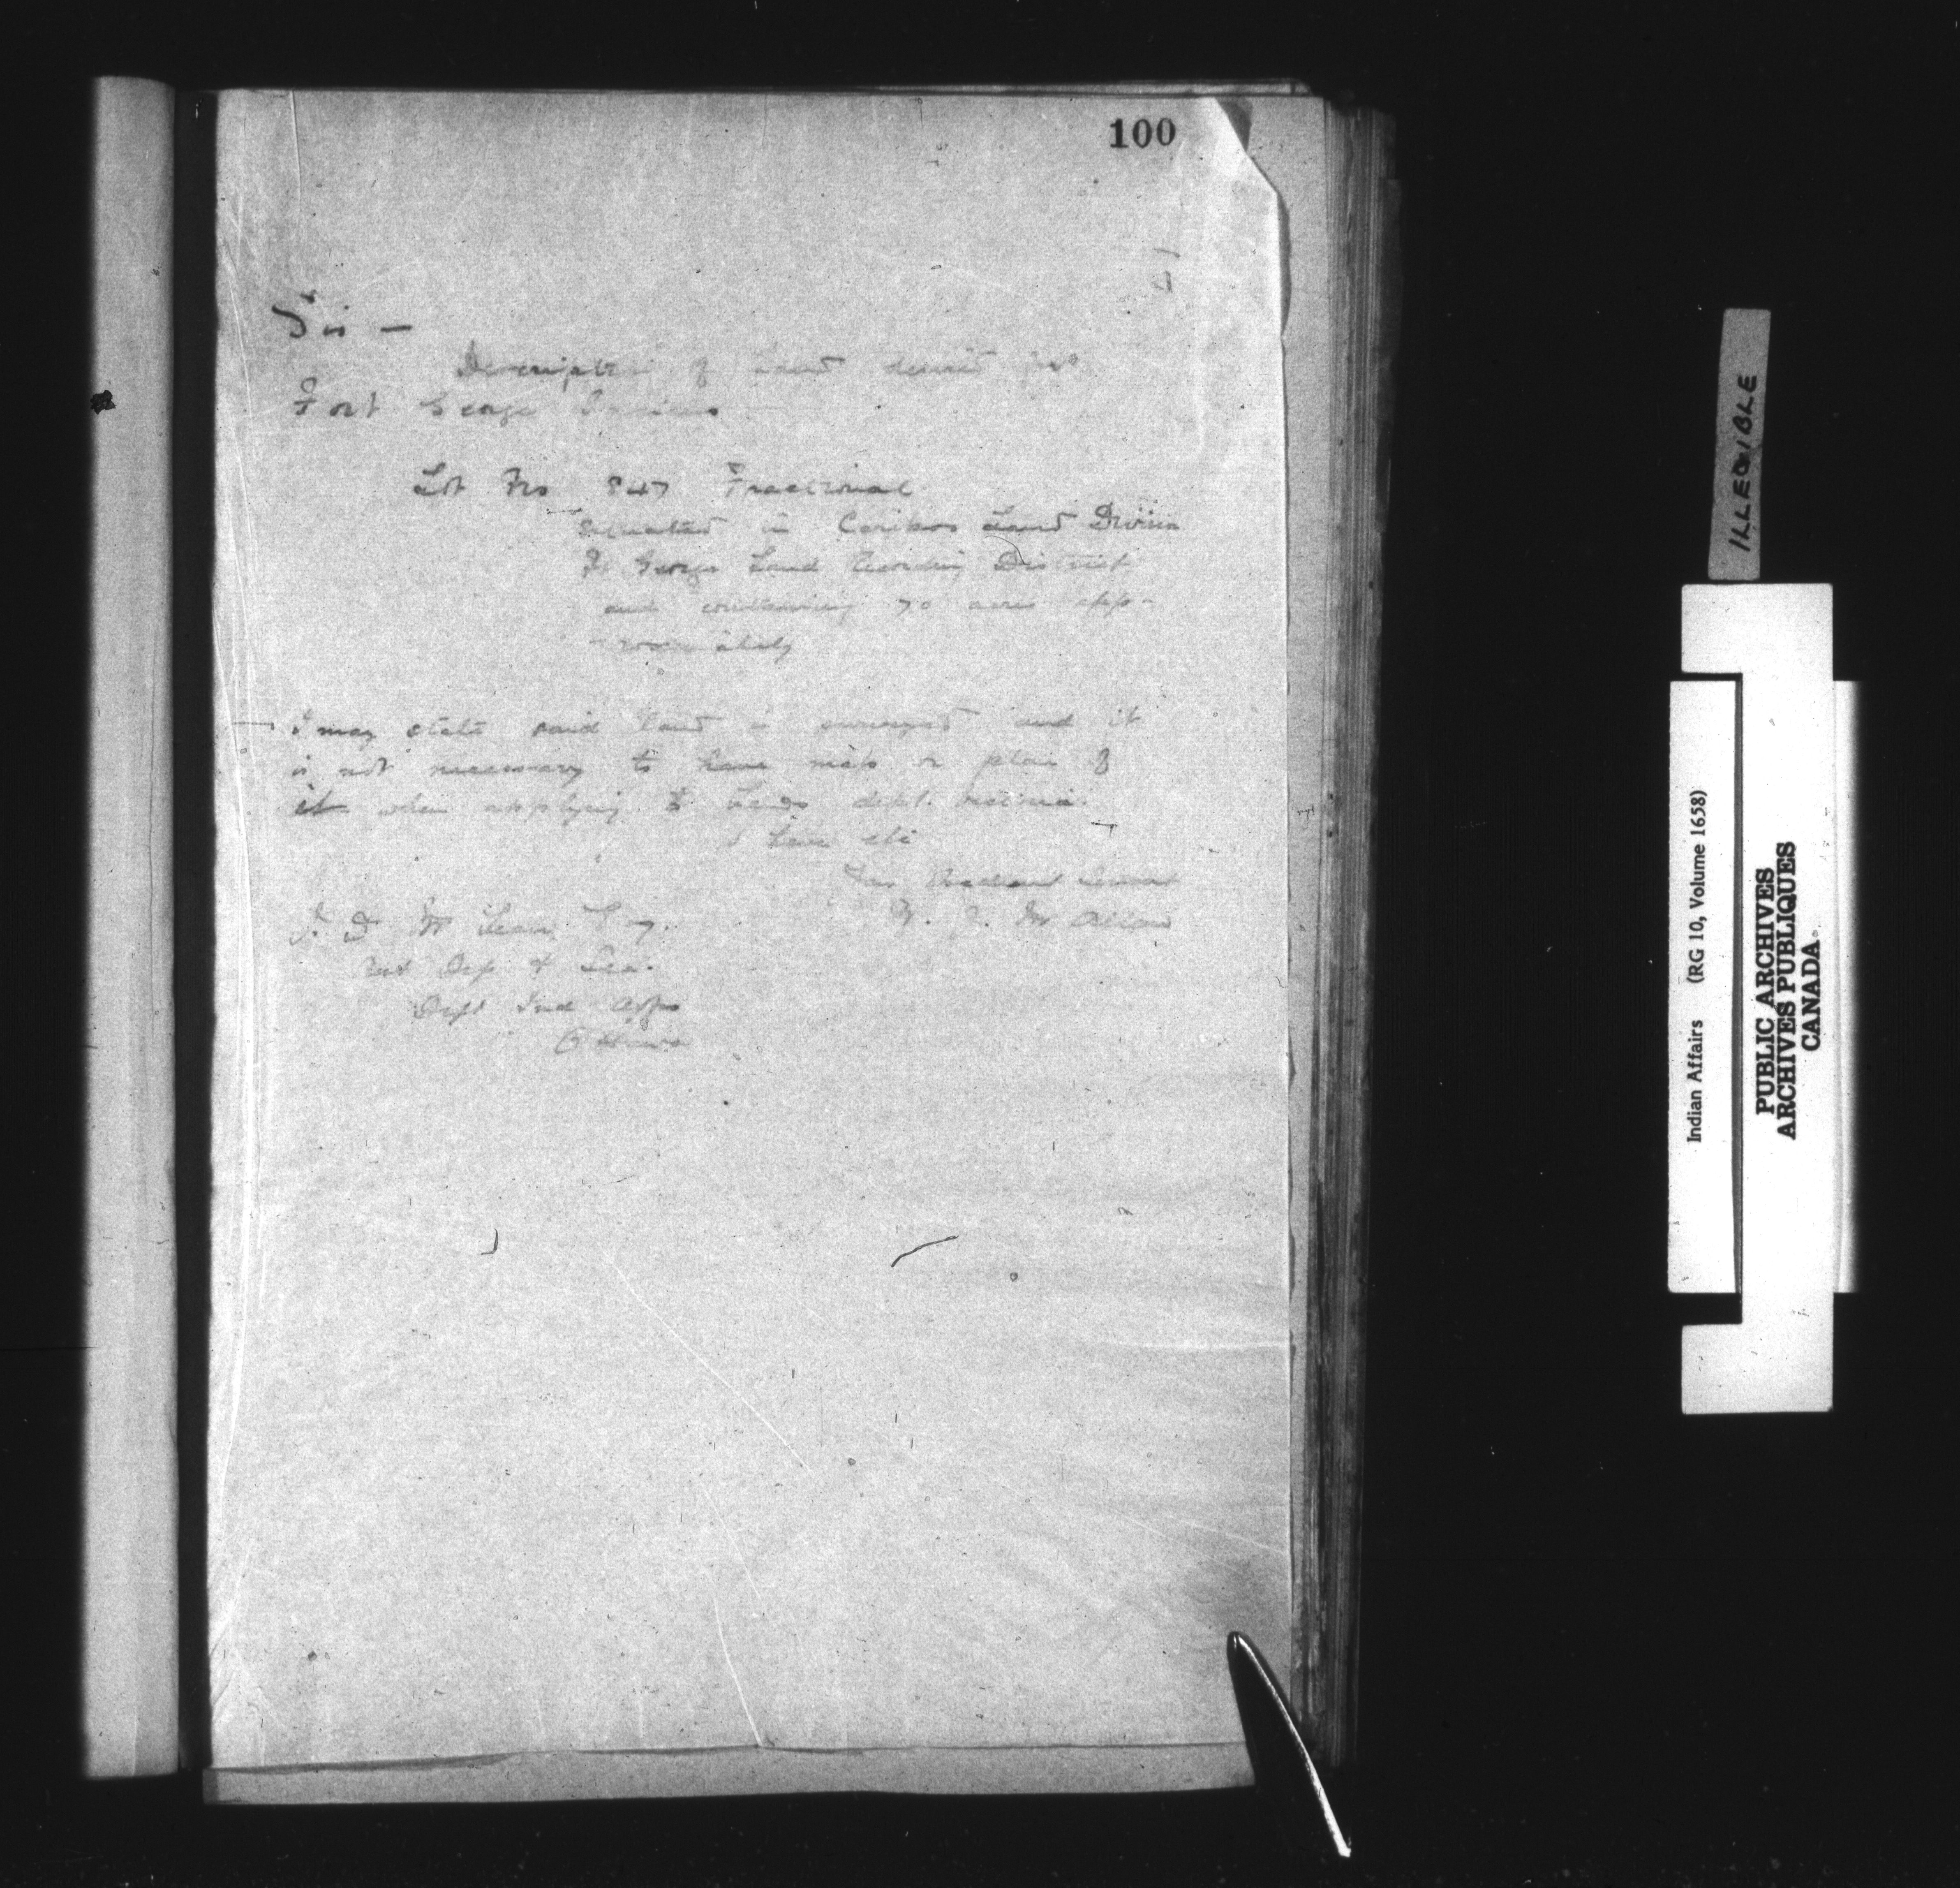 100
Sir —
Description of land desired for
Fort George Indians
Lot No 847 Fractional
situated in Cariboo Land Division
Ft George Land Recording District
and containing 70 acres app-
-roximately
I may state said land is surveyed and it
is not necessary to have map or plan of
it when applying to Lands dept. Victoria.
I have etc
Your Obedient Servant
W. J. McAllan
J. D. McLean Esq.
Asst Dep & Sec.
Dept Ind Affrs
Ottawa
ILLEGIBLE
Indian Affairs (RG 10, Volume 1658)
PUBLIC ARCHIVES
ARCHIVES PUBLIQUES
CANADA